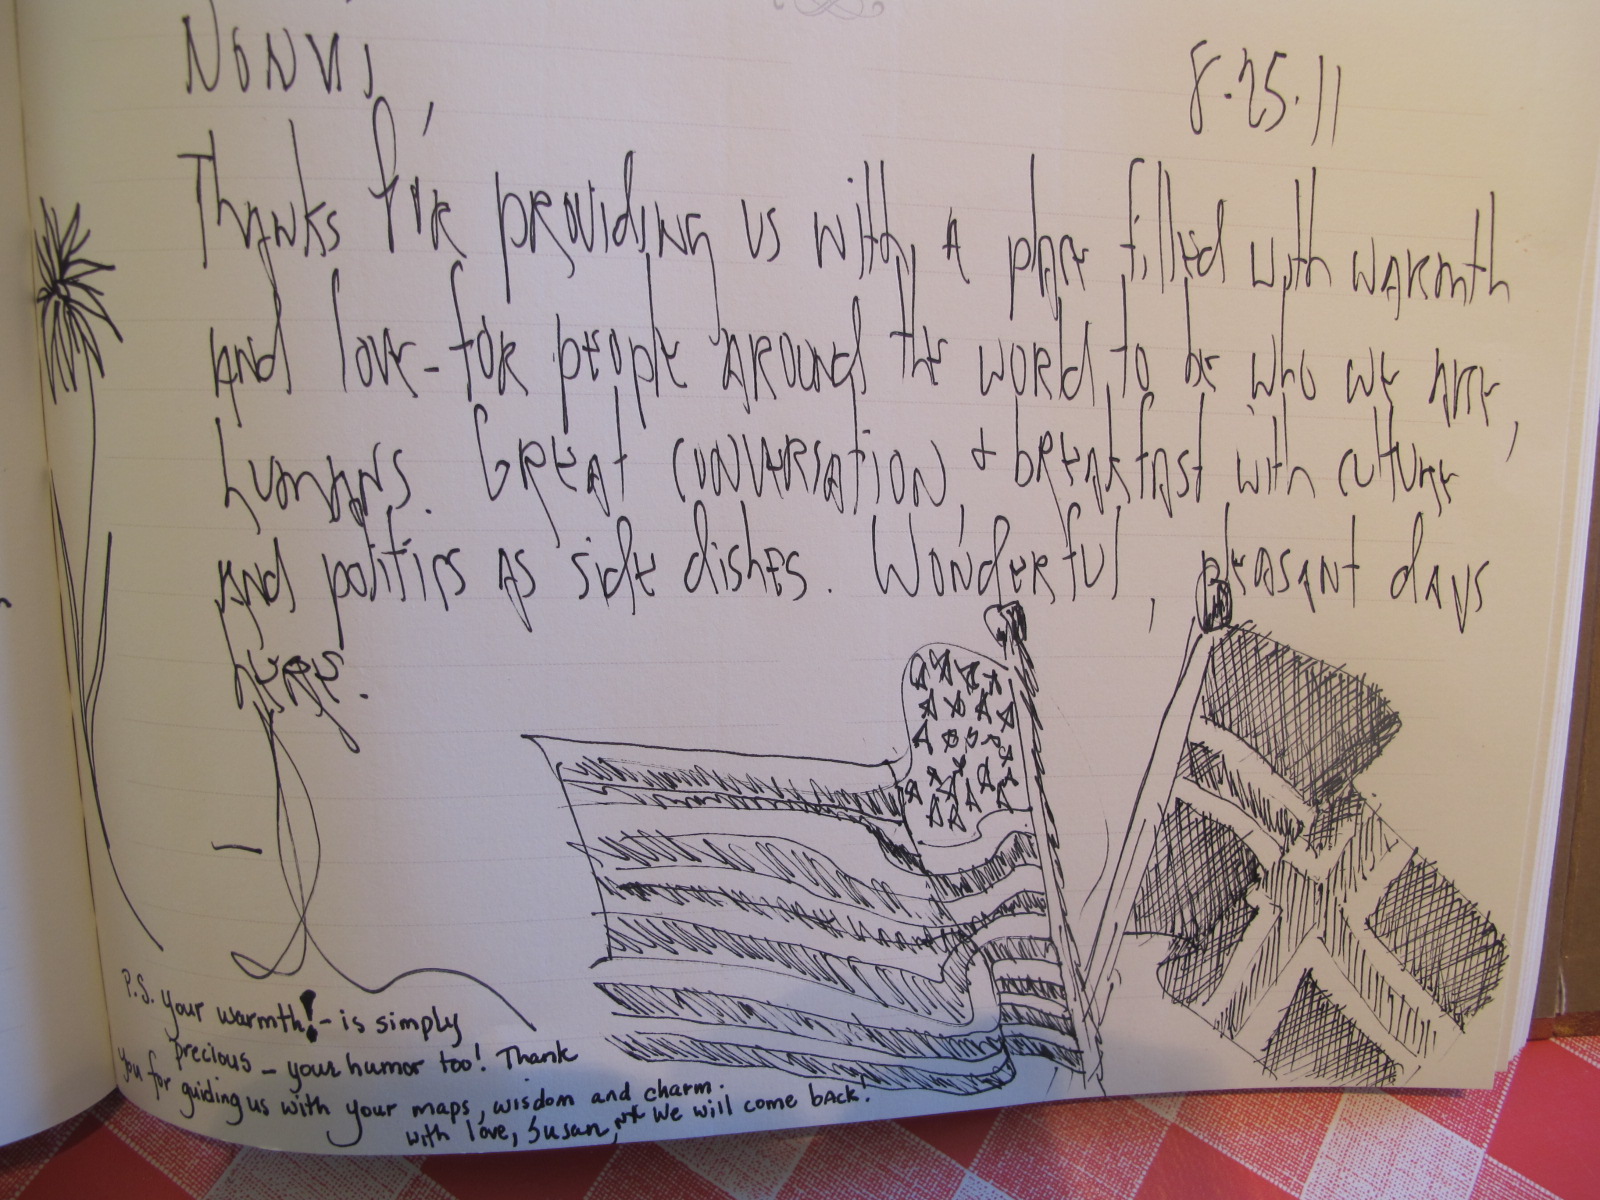 8.25.11
Thanks for providing us with a place filled with warmth
and love - for people around the world to be who we are,
humans. Great conversation + breakfast with culture
and politics as side dishes. Wonderful, pleasant days
here.
P.S. your warmth! - is simply
precious - your humor too! Thank
you for guiding us with your maps, wisdom and charm.
with love, Susan We will come back!